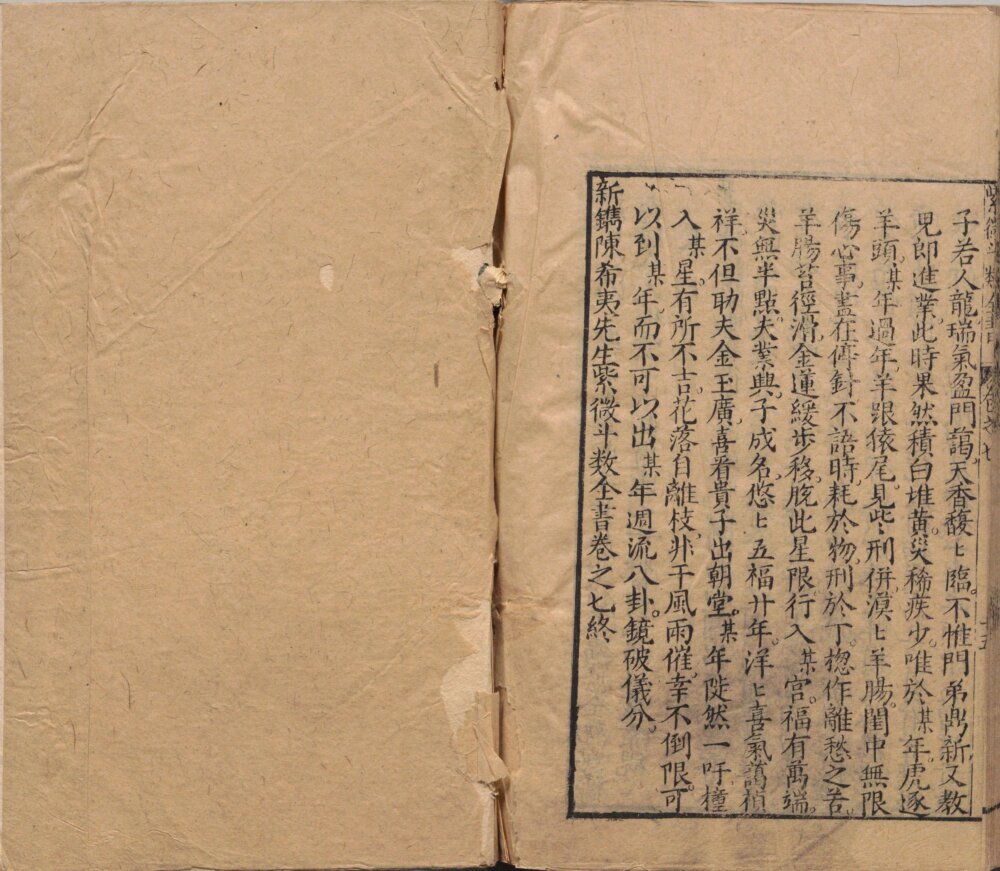 子若人龍瑞氣盈門藹天香馥〻臨。不惟門弟鼎新又教
兒郎進業。此時果然積白堆黃。災稀疾少。唯於某年。虎逐
羊頭。某年過年。羊跟猿尾。見些〻刑併。漠〻羊腸。閨中無限
傷心事。盡在停針不語時。耗於物。刑於丁。揔作離愁之苦。
羊腸苔徑滑。金蓮緩步移。脫此星限。行入某宮。福有萬端。
災無半點。夫業興。子成名。悠〻五福廿年。洋〻喜氣萬禎
祥。不但助夫金玉廣。喜看貴子出朝堂。某年陡然一吁撞
入某星。有所不吉。花落自離枝。非干風雨催。幸不倒限。可
以到某年。而不可以出某年。週流八卦。鏡破儀分。
新鐫陳希夷先生紫微斗数全書卷之七終